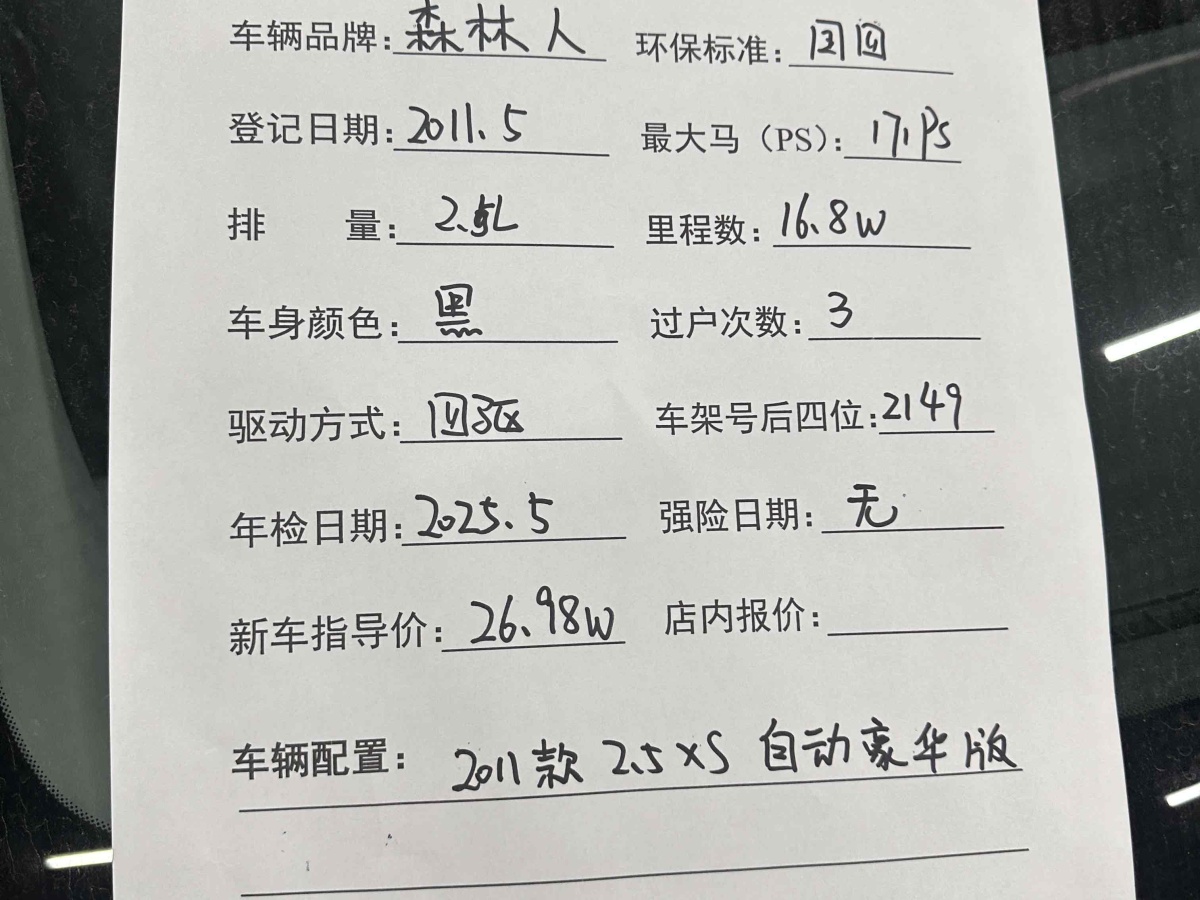 车辆品牌：森林人 环保标准：国四
登记日期：2011.5 最大马（PS）：171Ps
排 量：2.5L 里程数：16.8W
车身颜色：黑 过户次数：3
驱动方式：四驱 车架号后四位：2149
年检日期：2025.5 强险日期：无
新车指导价：26.98W 店内报价：
车辆配置：2011款 2.5XS 自动豪华版